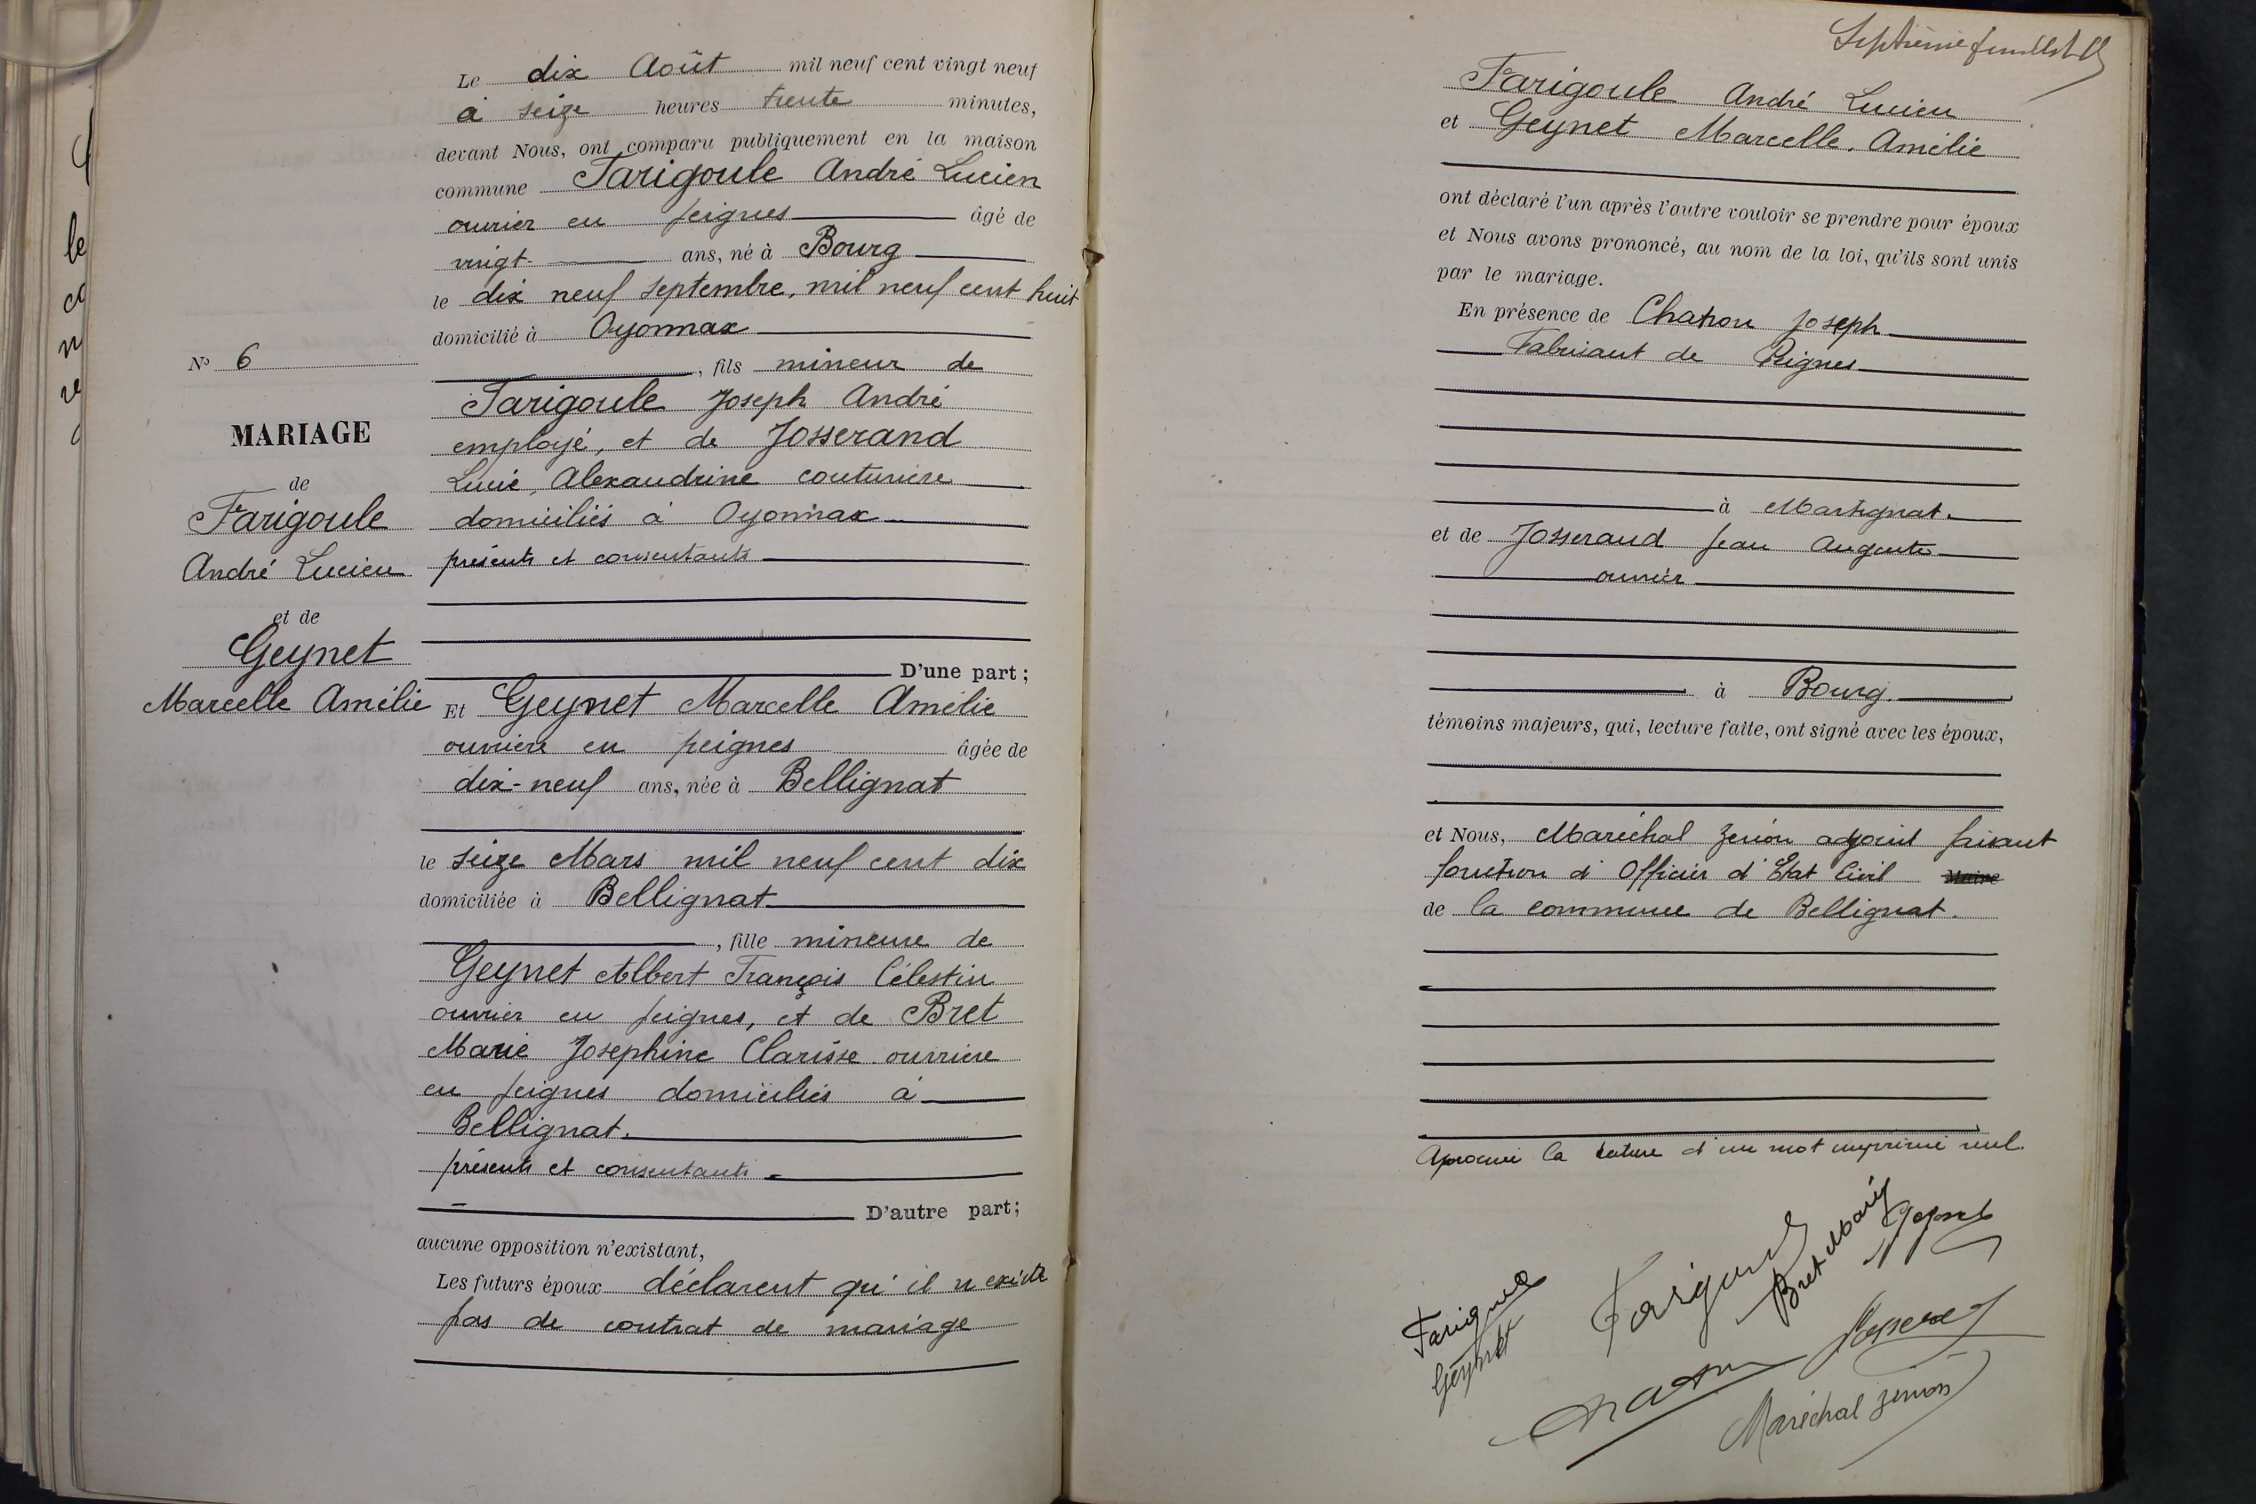 Le dix Août mil neuf cent vingt neuf
à seize heures trente minutes,
devant Nous, ont comparu publiquement en la maison
commune Farigoule André Lucien
ouvrier en peignes âgé de
vingt ans, né à Bourg
le dix neuf septembre, mil neuf cent huit
domicilié à Oyonnax
, fils mineur de
Farigoule Joseph André
employé, et de Josserand
Lucie, Alexandrine couturière
domiciliés à Oyonnax
présents et consentants
D'une part ;
N° 6
MARIAGE
de
Farigoule
André Lucien
et de
Geynet
Marcelle Amélie
Et Geynet Marcelle Amélie
ouvrière en peignes âgée de
dix-neuf ans, née à Bellignat
le seize Mars mil neuf cent dix
domiciliée à Bellignat
, fille mineure de
Geynet Albert François Célestin
ouvrier en peignes, et de Bret
Marie Josephine Clarisse ouvrière
en peignes domiciliés à
Bellignat.
présents et consentants
D'autre part ;
aucune opposition n'existant,
Les futurs époux déclarent qu'il n'existe
pas de contrat de mariage
Septième feuillet
Farigoule André Lucien
et Geynet Marcelle. Amélie
ont déclaré l'un après l'autre vouloir se prendre pour époux
et Nous avons prononcé, au nom de la loi, qu'ils sont unis
par le mariage.
En présence de Chatron Joseph
Fabricant de Peignes
à Martignat.
et de Josserand Jean Auguste
ouvrier
à Bourg.
témoins majeurs, qui, lecture faite, ont signé avec les époux,
et Nous, Maréchal Zénon adjoint faisant
fonction d'Officier d'Etat Civil Maire
de la commune de Bellignat.
Aprouvé la rature d'un mot imprimé nul.
Farigoule
Geynet
Farigoule
Bret Marie
Geynet
Maréchal Zénon